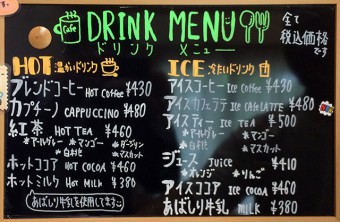 Cafe DRINK MENU
ドリンク メニュー
全て
税込価格
です
HOT 温かいドリンク
ブレンドコーヒー HOT Coffee ¥430
カプチーノ CAPPUCCINO ¥480
紅茶 HOT TEA ¥460
*アールグレー *マンゴー *ダージリン
*白桃 *マスカット
ホットココア HOT COCOA ¥460
ホットミルク HOT MILK ¥380
あばしり牛乳を使用してます
ICE 冷たいドリンク
アイスコーヒー ICE Coffee ¥430
アイスカフェラテ ICE CAFE LATTE ¥480
アイスティー ICE TEA ¥500
*アールグレー *マンゴー
*白桃 *マスカット
ジュース JUICE ¥410
*オレンジ *りんご
アイスココア ICE COCOA ¥460
あばしり牛乳 MILK ¥380